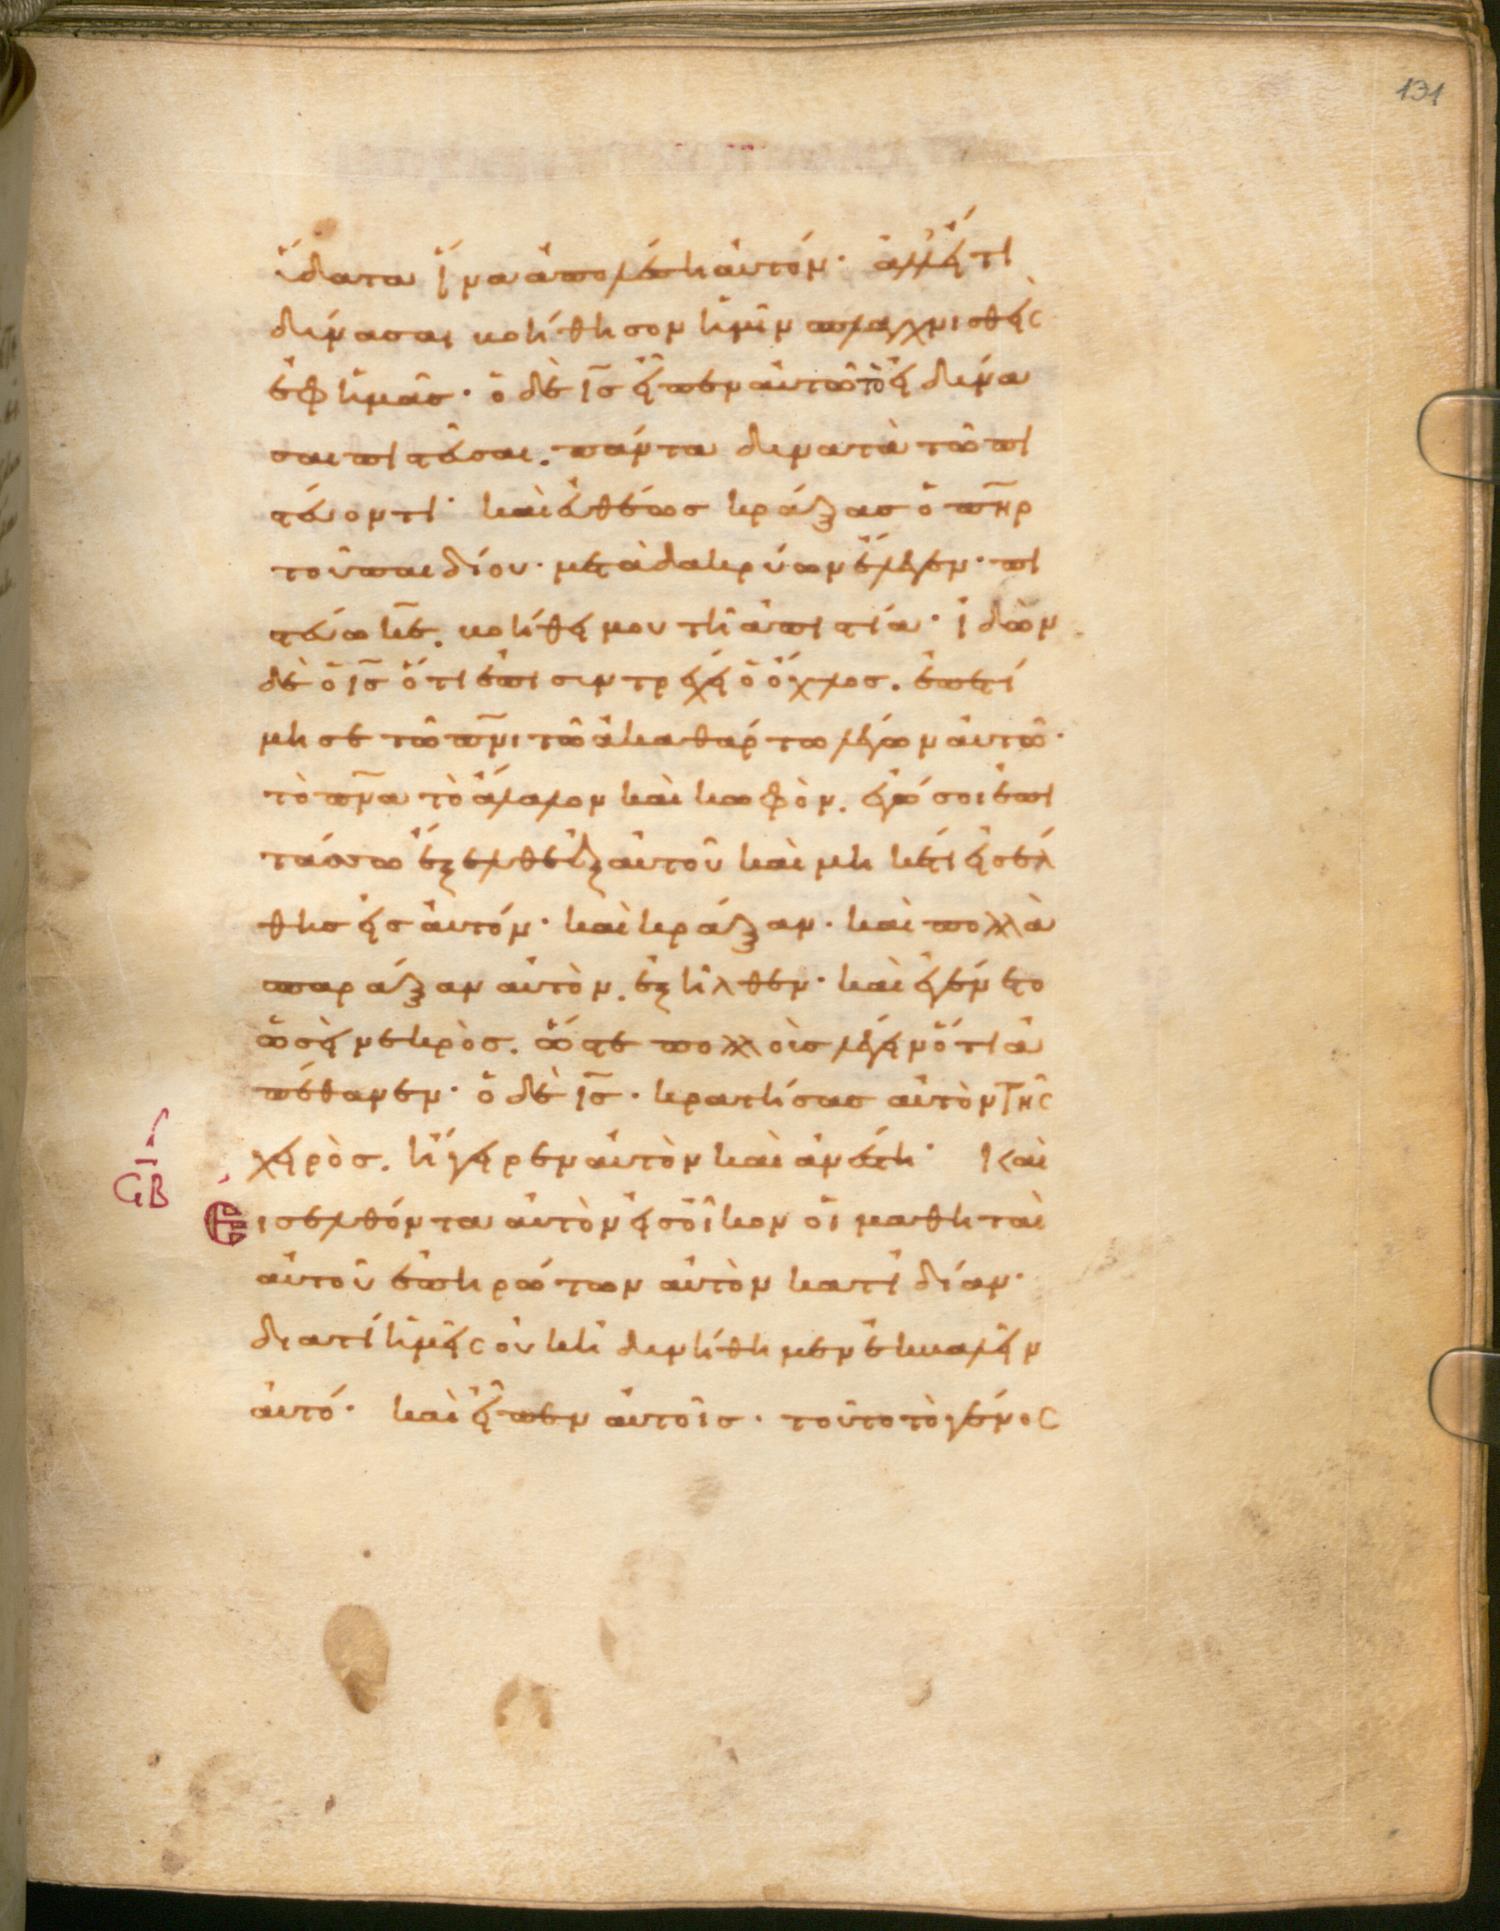 131
ὕδατα ἵνα ἀπολέση αὐτόν· ἀλλ εἴ τι
δύνασαι βοήθησον ἡμῖν σπλαγχνισθεὶς
ἐφ ἡμᾶς· ὁ δὲ ις εἶπεν αὐτῶ τὸ εἰ δύνα
σαι πιστεῦσαι. πάντα δυνατὰ τῶ πι
στεύοντι· καὶ εὐθέως κράξας ὁ πηρ
τοῦ παιδίου· μετὰ δακρύων ἔλεγεν· πι
στεύω κε. βοήθει μου τῆ ἀπιστία· ἰδὼν
δὲ ὁ ις ὅτι ἐπισυντρέχει ὁ ὄχλος. ἐπετί
μησε τῶ πνι τῶ ἀκαθάρτω λέγων αὐτῶ·
τὸ πνα τὸ ἄλαλον καὶ κωφὸν. ἐγώ σοι ἐπι
τάσσω ἔξελθε ἐξ αὐτοῦ καὶ μηκέτι εἰσέλ
θης εἰς αὐτόν· καὶ κράξαν· καὶ πολλὰ
σπαράξαν αὐτὸν. ἐξῆλθεν· καὶ ἐγένετο
ὡσεὶ νεκρὸς. ὥστε πολλοὺς λέγειν ὅτι ἀ
πέθανεν· ὁ δὲ ις· κρατήσας αὐτὸν τῆς
χειρὸς. ἤγειρεν αὐτὸν καὶ ἀνέστη· Και
ϙβ
Εἰσελθόντα αὐτὸν εἰς οἶκον οἱ μαθηταὶ
αὐτοῦ ἐπηρώτων αὐτὸν κατιδίαν·
διατί ἡμεῖς οὐκ ἠδυνήθημεν ἐκβαλεῖν
αὐτό· καὶ εἶπεν αὐτοῖς· τοῦτο τὸ γένος